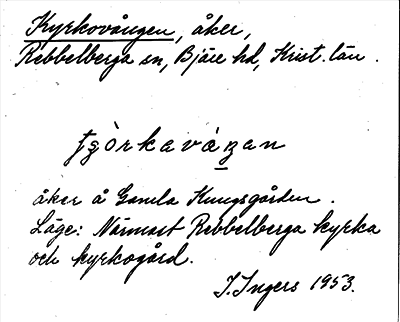 Kyrkovången, åker,
Rebbelberga sn, Bjäre hd, Krist. län.
åker å Gamla Kungsgården.
Läge: Närmast Rebbelberga kyrka
och kyrkogård.
I. Ingers 1953.